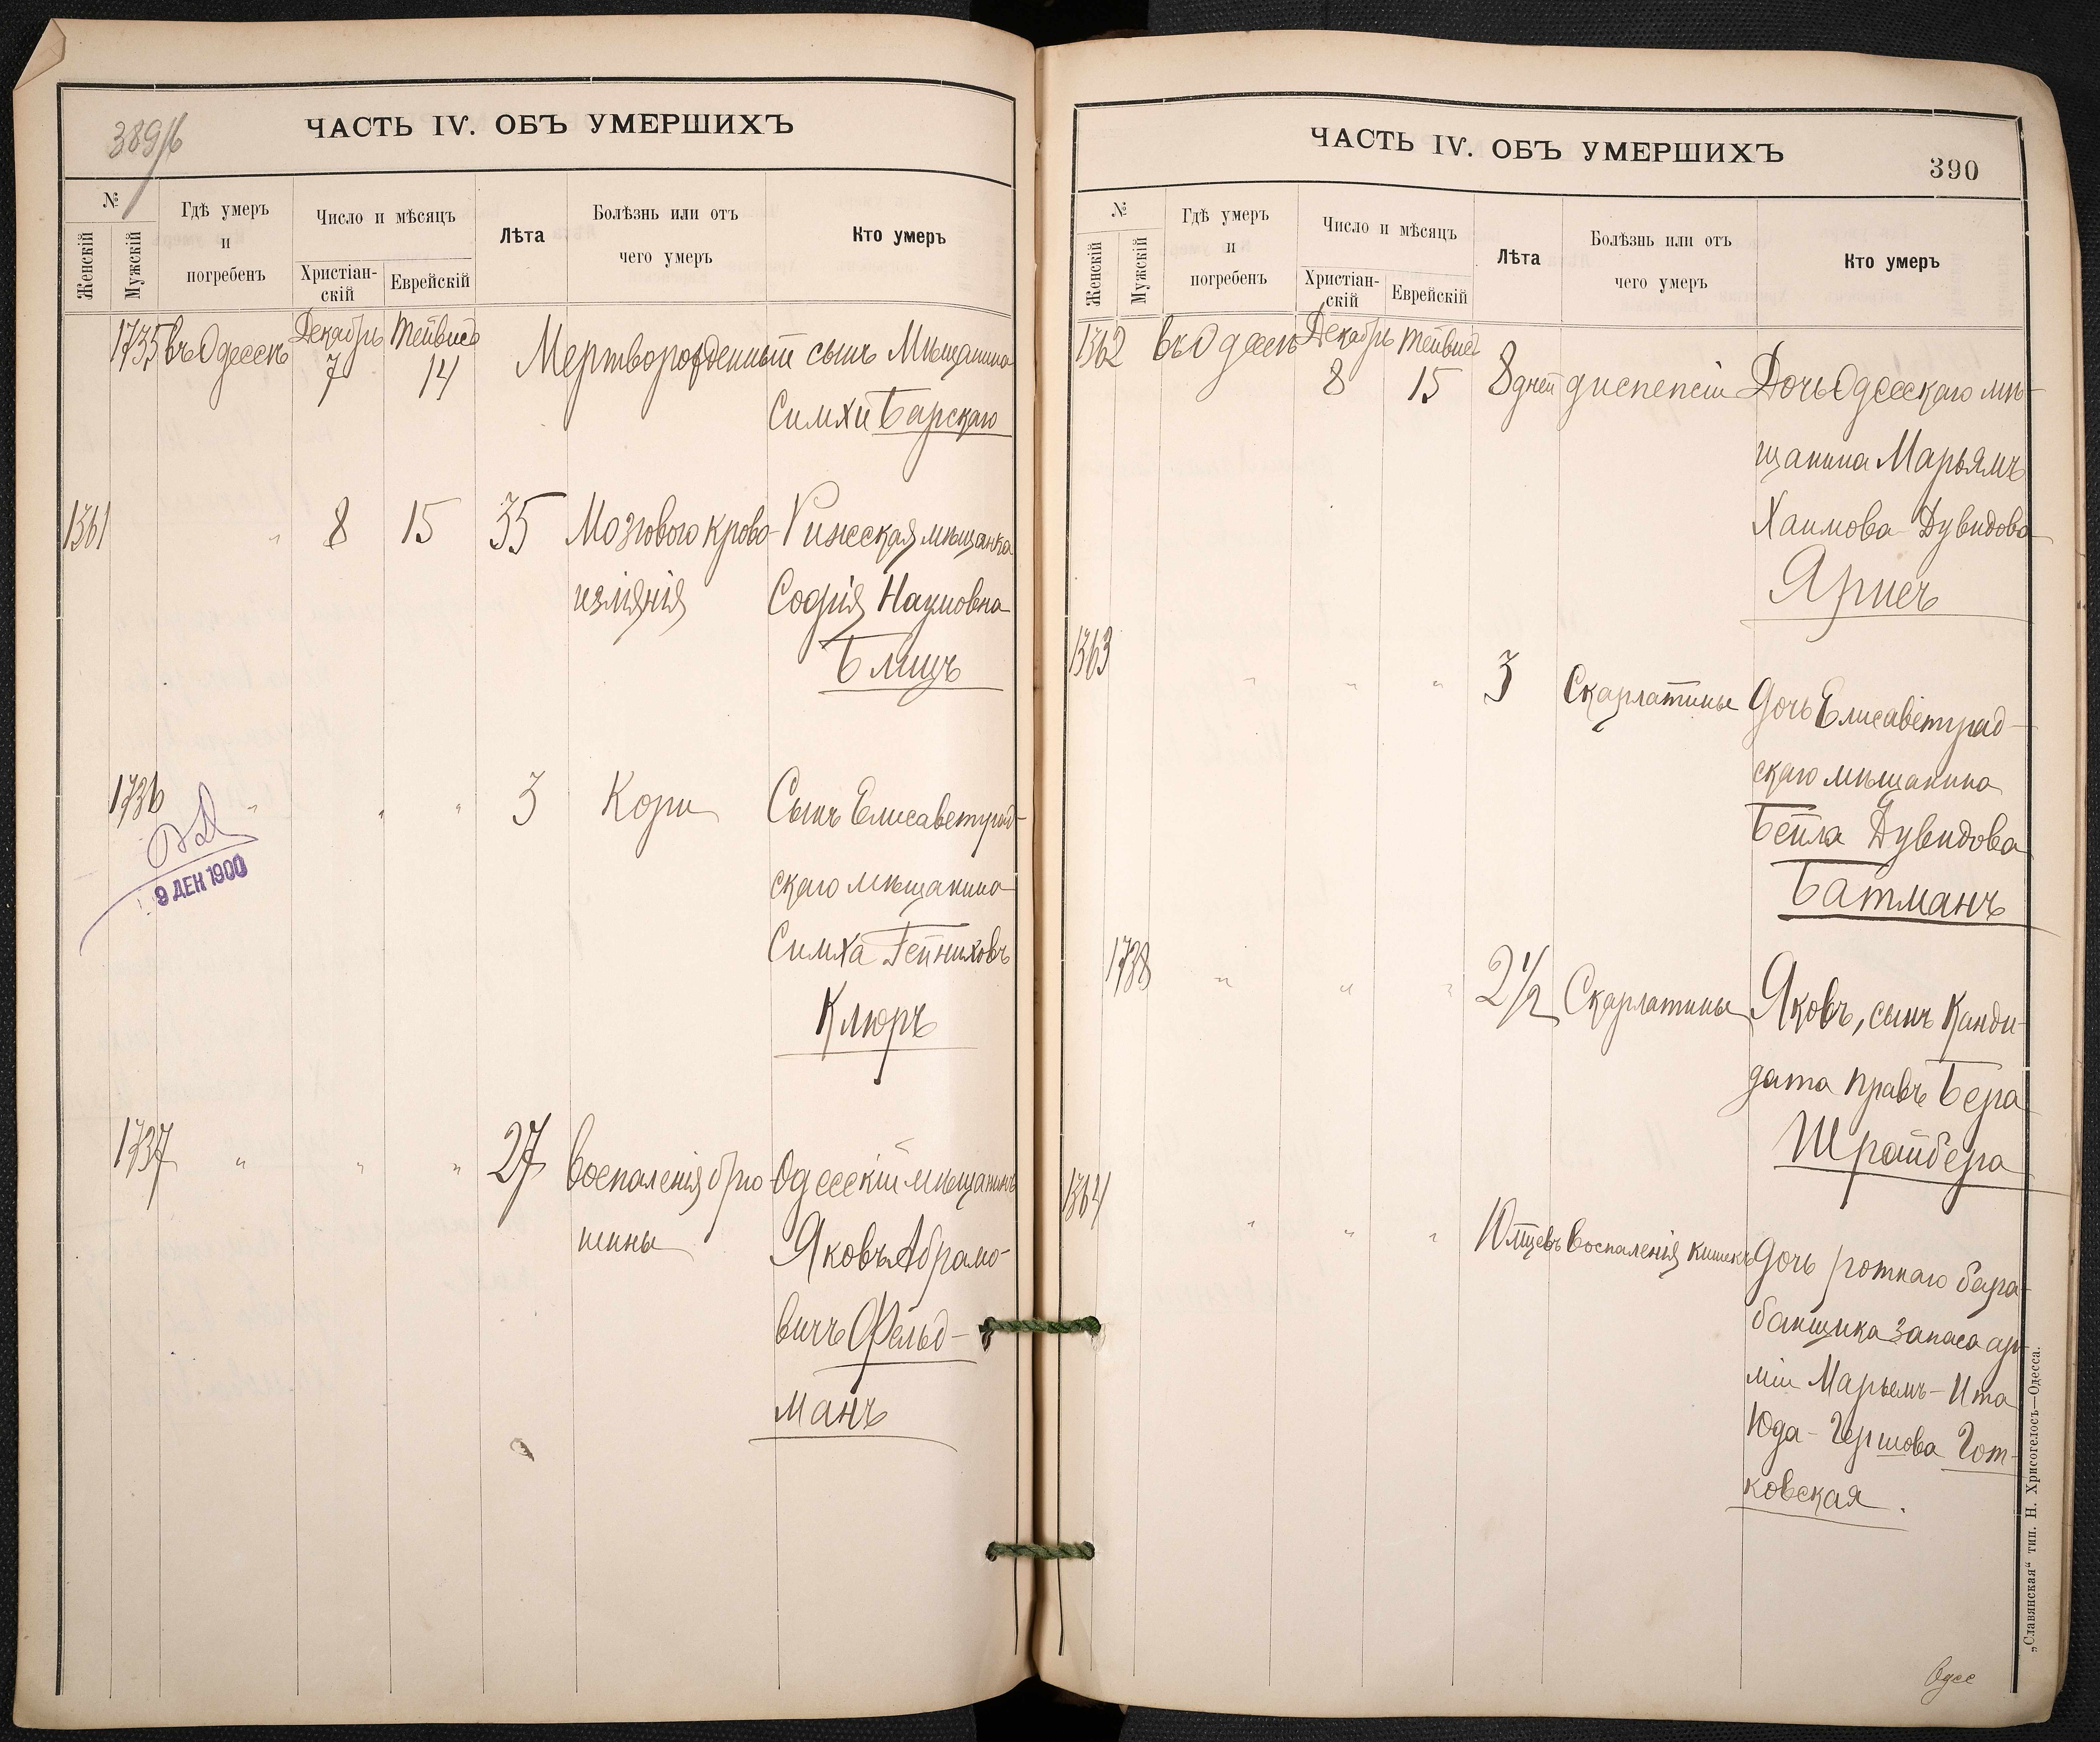 389/б
ЧАСТЬ IV. ОБЪ УМЕРШИХЪ
№
Женскій
Мужскій
Гдѣ умеръ
и
погребенъ
Число и мѣсяцъ
Христіан-
скій
Еврейскій
Лѣта
Болѣзнь или отъ
чего умеръ
Кто умеръ
1735 въ Одессѣ Декабрь 7 Тейвисъ 14 Мертворожденный сынъ Мѣщанина
Симхи Барскаго
1361 " 8 15 35 Мозгового крово- Рижская мѣщанка
изліянія Софія Наумовна
Блицъ
1736 " " " 3 Кори Сынъ Елисаветград-
9 ДЕК 1900
скаго мѣщанина
Симха Гейниховъ
Клюръ
1737 " " " 27 Воспаленія брю- Одесскій мѣщанинъ
шины Яковъ Абрамо-
вичъ Фельд-
манъ
ЧАСТЬ IV. ОБЪ УМЕРШИХЪ
390
№
Женскій
Мужскій
Гдѣ умеръ
и
погребенъ
Число и мѣсяцъ
Христіан-
скій
Еврейскій
Лѣта
Болѣзнь или отъ
чего умеръ
Кто умеръ
1362 въ Одессѣ Декабрь 8 Тейвисъ 15 8 дней диспепсіи Дочь Одесскаго мѣ-
щанина Марьямъ
Хаимова-Дувидова
Ярисъ
1363 " " " 3 Скарлатины Дочь Елисаветград-
скаго мѣщанина
Бейла Дувидова
Батманъ
1738 " " " 2 1/2 Скарлатины Яковъ, сынъ Канди-
дата правъ Бера
Шрайбера
1364 " " " 10 мѣцевъ Воспаленія кишекъ Дочь ротнаго бара-
банщика запаса ар-
міи Марьемъ-Ита
Юда-Гершова Гот-
ковская.
Одес
„Славянская“ тип. Н. Хрисогелосъ—Одесса.